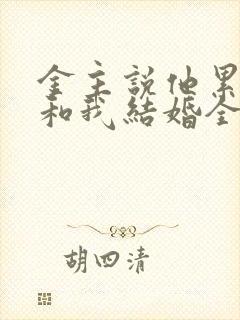 金主說他累
和我結婚全
胡四清